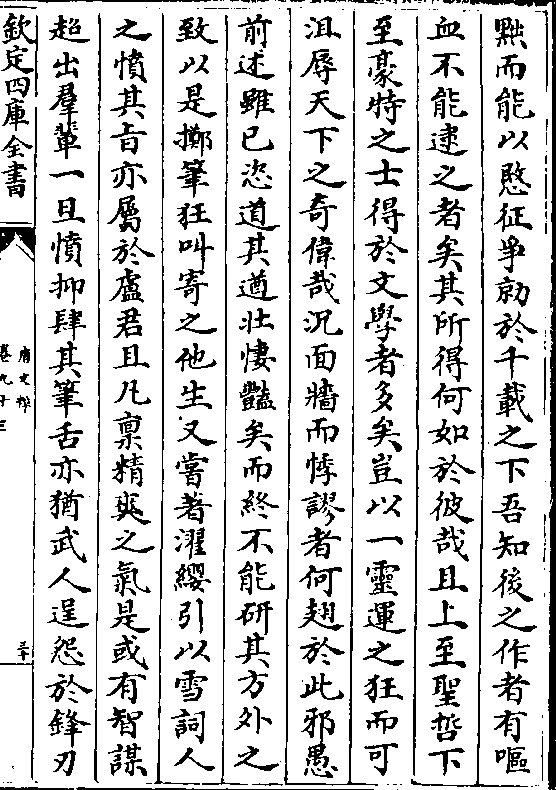 黜而能以愍征爭勍於千載之下吾知後之作者有嘔
血不能逮之者矣其所得何如於彼哉且上至聖哲下
至豪特之士得於文學者多矣豈以一靈運之狂而可
沮辱天下之奇偉哉況面牆而悖謬者何翅於此邪愚
前述雖已恣道其遒壯悽豔矣而終不能研其方外之
致以是擲筆狂叫寄之他生又嘗著濯纓引以雪詞人
之憤其旨亦屬於盧君且凡禀精爽之氣是或有智謀
超出羣輩一旦憤抑肆其筆舌亦猶武人逞怨於鋒刃
欽定四庫全書
唐文粹
卷九十三
三十